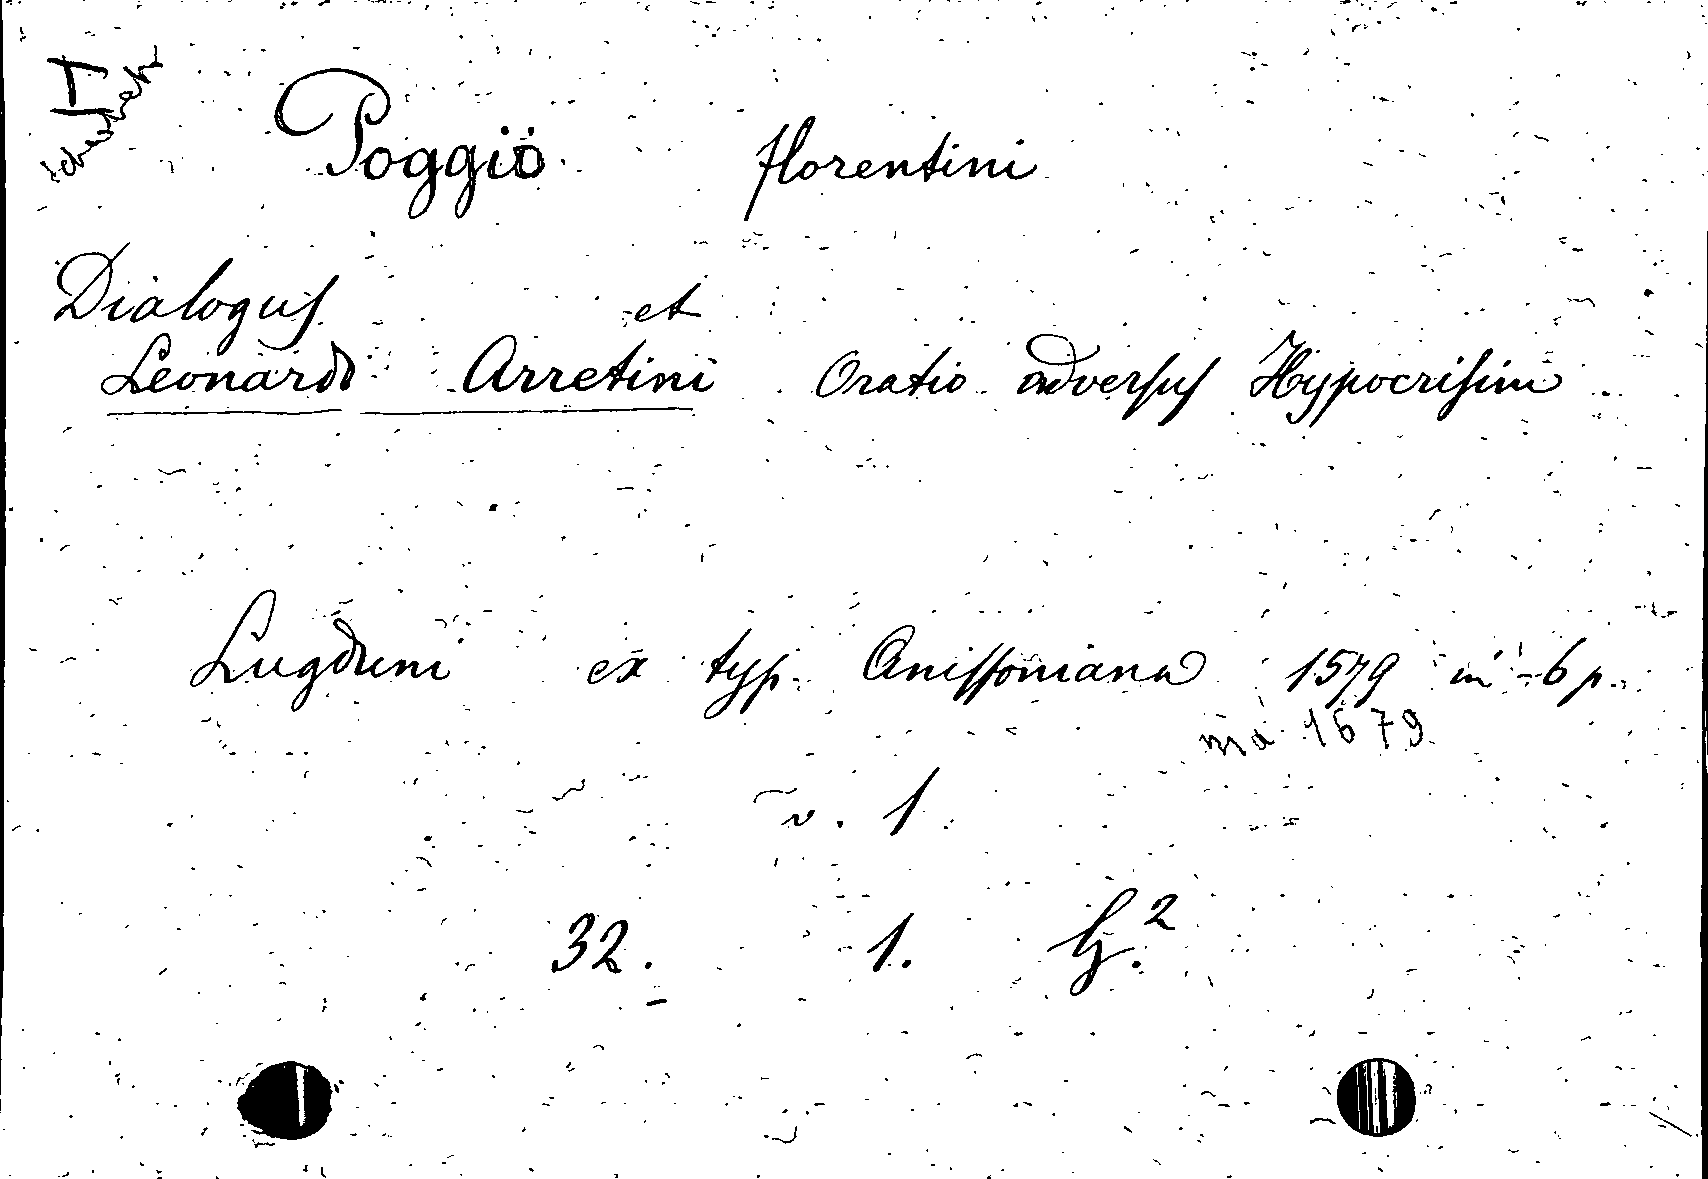 Poggio florentini
Dialogus et
Leonardo Arretini Oratio adversus Hypocrisim
Lugduni ex typ. Anissoniana 1579 in -6 p.
ma 1679
v. 1
32. 1. G.²